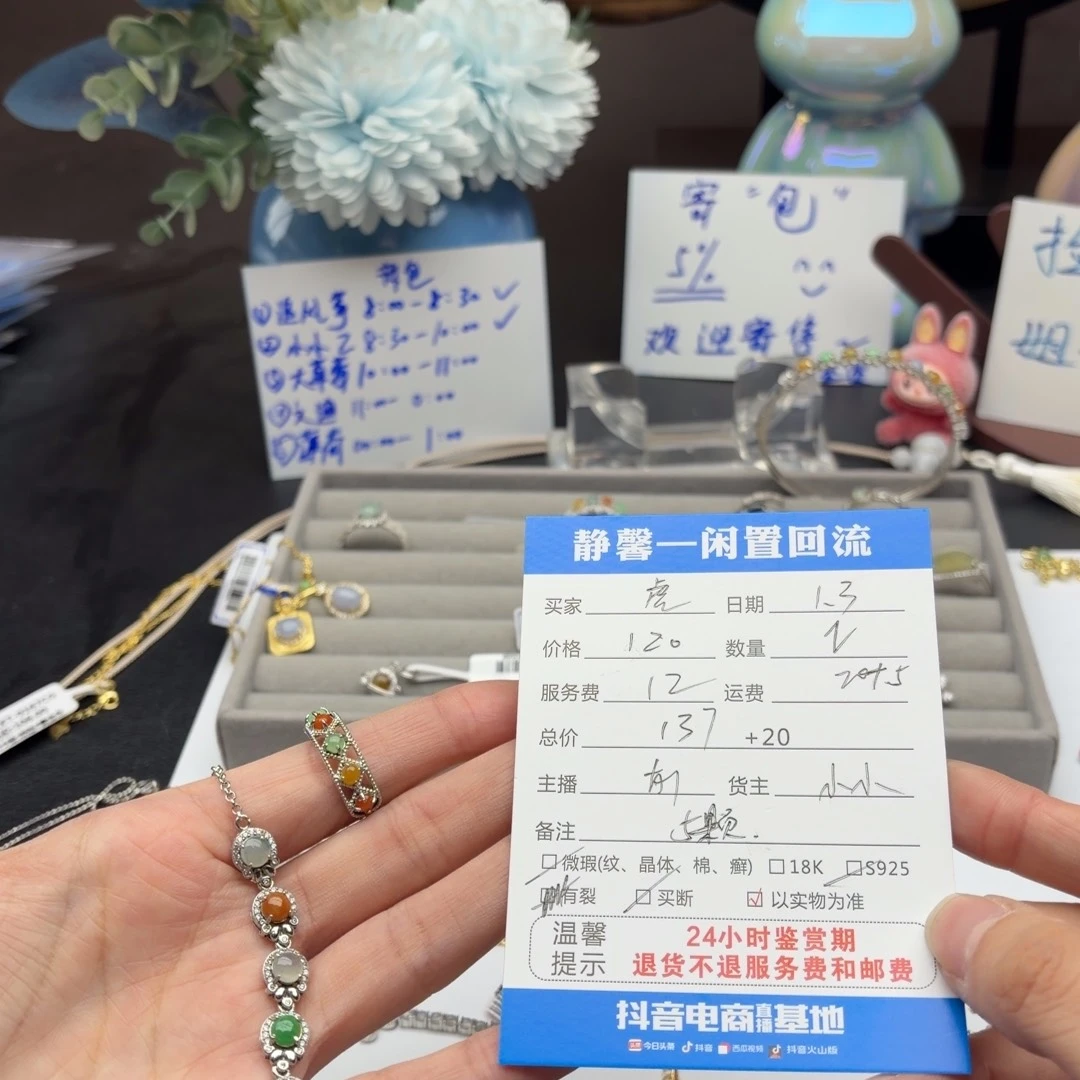 寄"包"
5%
欢迎寄售
寄包
①逐风等 8:00-8:30 ✓
② 小小Z 8:30-10:00 ✓
10:00-11:00
1:00
姐
静馨一闲置回流
买家 虎 日期 1.3
价格 120 数量
服务费 12 运费
总价 137 +20
主播 货主 小小
备注 5颗.
微瑕(纹、晶体、棉、癣) 18K S925
有裂 买断 ☑ 以实物为准
温馨提示
24小时鉴赏期
退货不退服务费和邮费
抖音电商直播基地
头条 今日头条 抖音 西瓜视频 抖音火山版